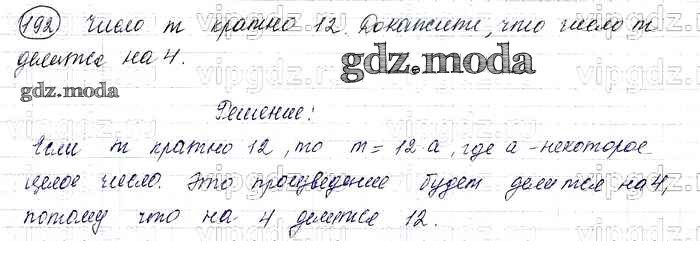 192 Число m кратно 12. Докажите, что число m
делится на 4.
gdz.moda
gdz.moda
Решение:
Если m кратно 12, то m = 12·a, где a - некоторое
целое число. Это произведение будет делится на 4,
потому что на 4 делится 12.